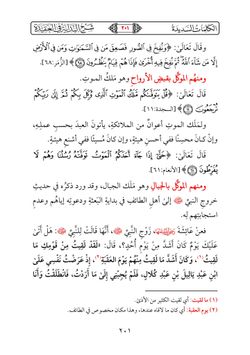 الكلمات السديدة
٢٠١
شرح البداية في العقيدة
وقال تعالى: ﴿وَنُفِخَ فِي الصُّورِ فَصَعِقَ مَن فِي السَّمَاوَاتِ وَمَن فِي الْأَرْضِ
إِلَّا مَن شَاءَ اللَّهُ ثُمَّ نُفِخَ فِيهِ أُخْرَى فَإِذَا هُمْ قِيَامٌ يَنظُرُونَ ۝﴾ [الزمر:٦٨].
ومنهم الموكَّل بقبض الأرواح وهو مَلَكُ الموتِ.
قال تعالى: ﴿قُلْ يَتَوَفَّاكُم مَّلَكُ الْمَوْتِ الَّذِي وُكِّلَ بِكُمْ ثُمَّ إِلَى رَبِّكُمْ
تُرْجَعُونَ ۝﴾ [السجدة:١١].
ولمَلَكِ الموتِ أعوانٌ من الملائكة، يأتون العبدَ بحسبِ عملِهِ،
وإنْ كانَ محسنًا ففي أحسنِ هيئةٍ، وإن كانَ مُسيئًا ففي أشنعِ هيئةٍ.
قال تعالى: ﴿حَتَّى إِذَا جَاءَ أَحَدَكُمُ الْمَوْتُ تَوَفَّتْهُ رُسُلُنَا وَهُمْ لَا
يُفَرِّطُونَ ۝﴾ [الأنعام:٦١].
ومنهم الموكَّل بالجبالِ وهو مَلَكُ الجبالِ، وقد ورد ذكرُهُ في حديثِ
خروجِ النبيِّ ﷺ إلى أهلِ الطائفِ في بدايةِ البَعثةِ ودعوتِهِ إياهُم وعدمِ
استجابتِهِم لِهِ.
فعنْ عائشةَ رضي الله عنها، زَوْجِ النَّبِيِّ ﷺ، أَنَّهَا قَالَتْ لِلنَّبِيِّ ﷺ: هَلْ أَتَى
عَلَيْكَ يَوْمٌ كَانَ أَشَدَّ مِنْ يَوْمِ أُحُدٍ؟، قَالَ: «لَقَدْ لَقِيتُ مِنْ قَوْمِكِ مَا
لَقِيتُ(١)، وَكَانَ أَشَدُّ مَا لَقِيتُ مِنْهُمْ يَوْمَ العَقَبَةِ(٢)، إِذْ عَرَضْتُ نَفْسِي عَلَى
ابْنِ عَبْدِ يَالِيلَ بْنِ عَبْدِ كُلَالٍ، فَلَمْ يُجِبْنِي إِلَى مَا أَرَدْتُ، فَانْطَلَقْتُ وَأَنَا
(١) ما لقيت: أي لقيت الكثير من الأذى.
(٢) يوم العقبة: أي كان ما لاقاه عندها، وهذا مكان مخصوص في الطائف.
٢٠١